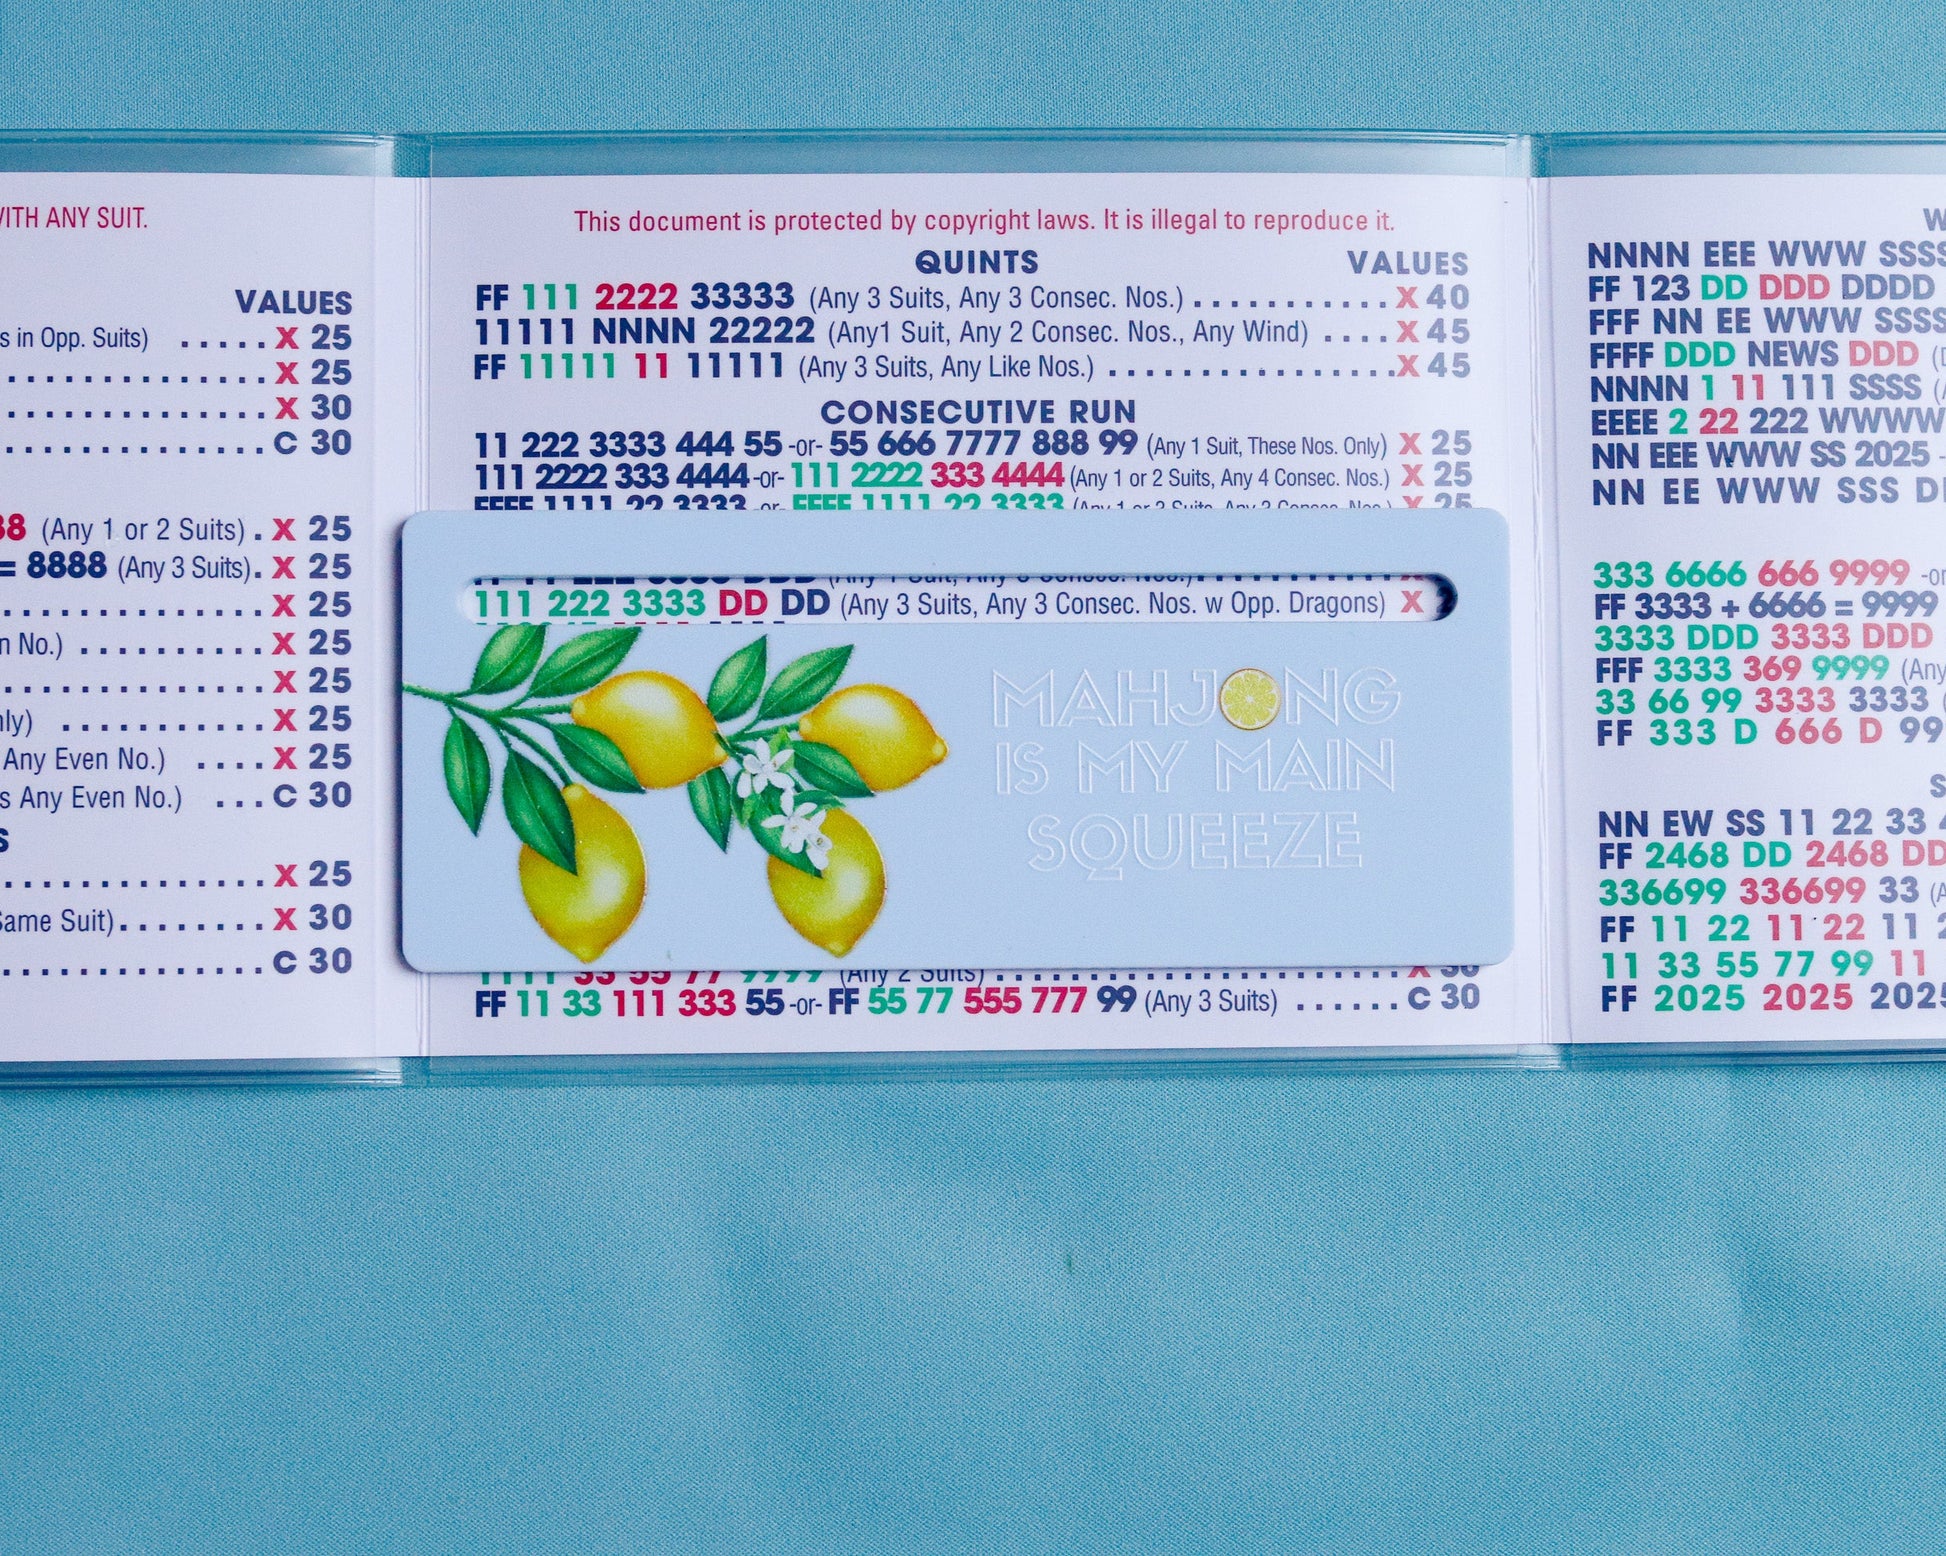 WITH ANY SUIT.
VALUES
s in Opp. Suits) ..... X 25
X 25
X 30
C 30
88 (Any 1 or 2 Suits) . X 25
= 8888 (Any 3 Suits). X 25
X 25
n No.) .......... X 25
X 25
nly) ........... X 25
Any Even No.) .... X 25
s Any Even No.) ... C 30
S
X 25
Same Suit)........ X 30
C 30
This document is protected by copyright laws. It is illegal to reproduce it.
QUINTS VALUES
FF 111 2222 33333 (Any 3 Suits, Any 3 Consec. Nos.) ........... X 40
11111 NNNN 22222 (Any1 Suit, Any 2 Consec. Nos., Any Wind) .... X 45
FF 11111 11 11111 (Any 3 Suits, Any Like Nos.) ................. X 45
CONSECUTIVE RUN
11 222 3333 444 55 -or- 55 666 7777 888 99 (Any 1 Suit, These Nos. Only) X 25
111 2222 333 4444 -or- 111 2222 333 4444 (Any 1 or 2 Suits, Any 4 Consec. Nos.) X 25
FFFF 1111 22 3333 -or- FFFF 1111 22 3333 (Any 1 or 3 Suits, Any 3 Consec. Nos.) X 25
111 222 3333 DD DD (Any 3 Suits, Any 3 Consec. Nos. w Opp. Dragons) X
MAHJONG
IS MY MAIN
SQUEEZE
1111 33 55 77 9999 (Any 2 Suits) X 30
FF 11 33 111 333 55 -or- FF 55 77 555 777 99 (Any 3 Suits) ...... C 30
W
NNNN EEE WWW SSSS
FF 123 DD DDD DDDD
FFF NN EE WWW SSSS
FFFF DDD NEWS DDD
NNNN 1 11 111 SSSS
EEEE 2 22 222 WWWW
NN EEE WWW SS 2025 -
NN EE WWW SSS D
333 6666 666 9999 -or
FF 3333 + 6666 = 9999
3333 DDD 3333 DDD
FFF 3333 369 9999 (Any
33 66 99 3333 3333 (
FF 333 D 666 D 99
S
NN EW SS 11 22 33 4
FF 2468 DD 2468 DD
336699 336699 33 (A
FF 11 22 11 22 11 2
11 33 55 77 99 11
FF 2025 2025 2025